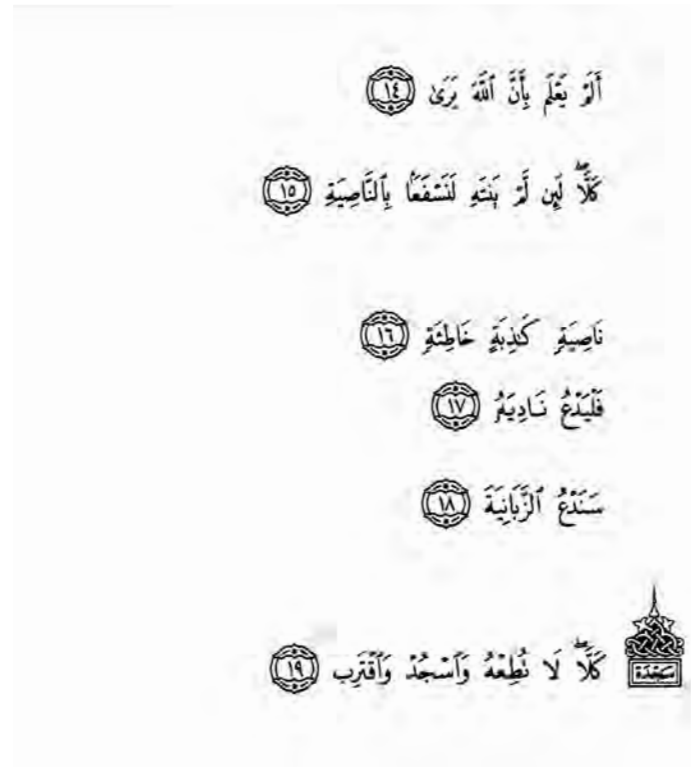 أَلَمۡ يَعۡلَم بِأَنَّ ٱللَّهَ يَرَىٰ ١٤
كَلَّاۖ لَئِن لَّمۡ يَنتَهِ لَنَسۡفَعَۢا بِٱلنَّاصِيَةِ ١٥
نَاصِيَةٖ كَٰذِبَةٍ خَاطِئَةٖ ١٦
فَلۡيَدۡعُ نَادِيَهُۥ ١٧
سَنَدۡعُ ٱلزَّبَانِيَةَ ١٨
كَلَّاۖ لَا تُطِعۡهُ وَٱسۡجُدۡۤ وَٱقۡتَرِب ١٩
سَجْدَة